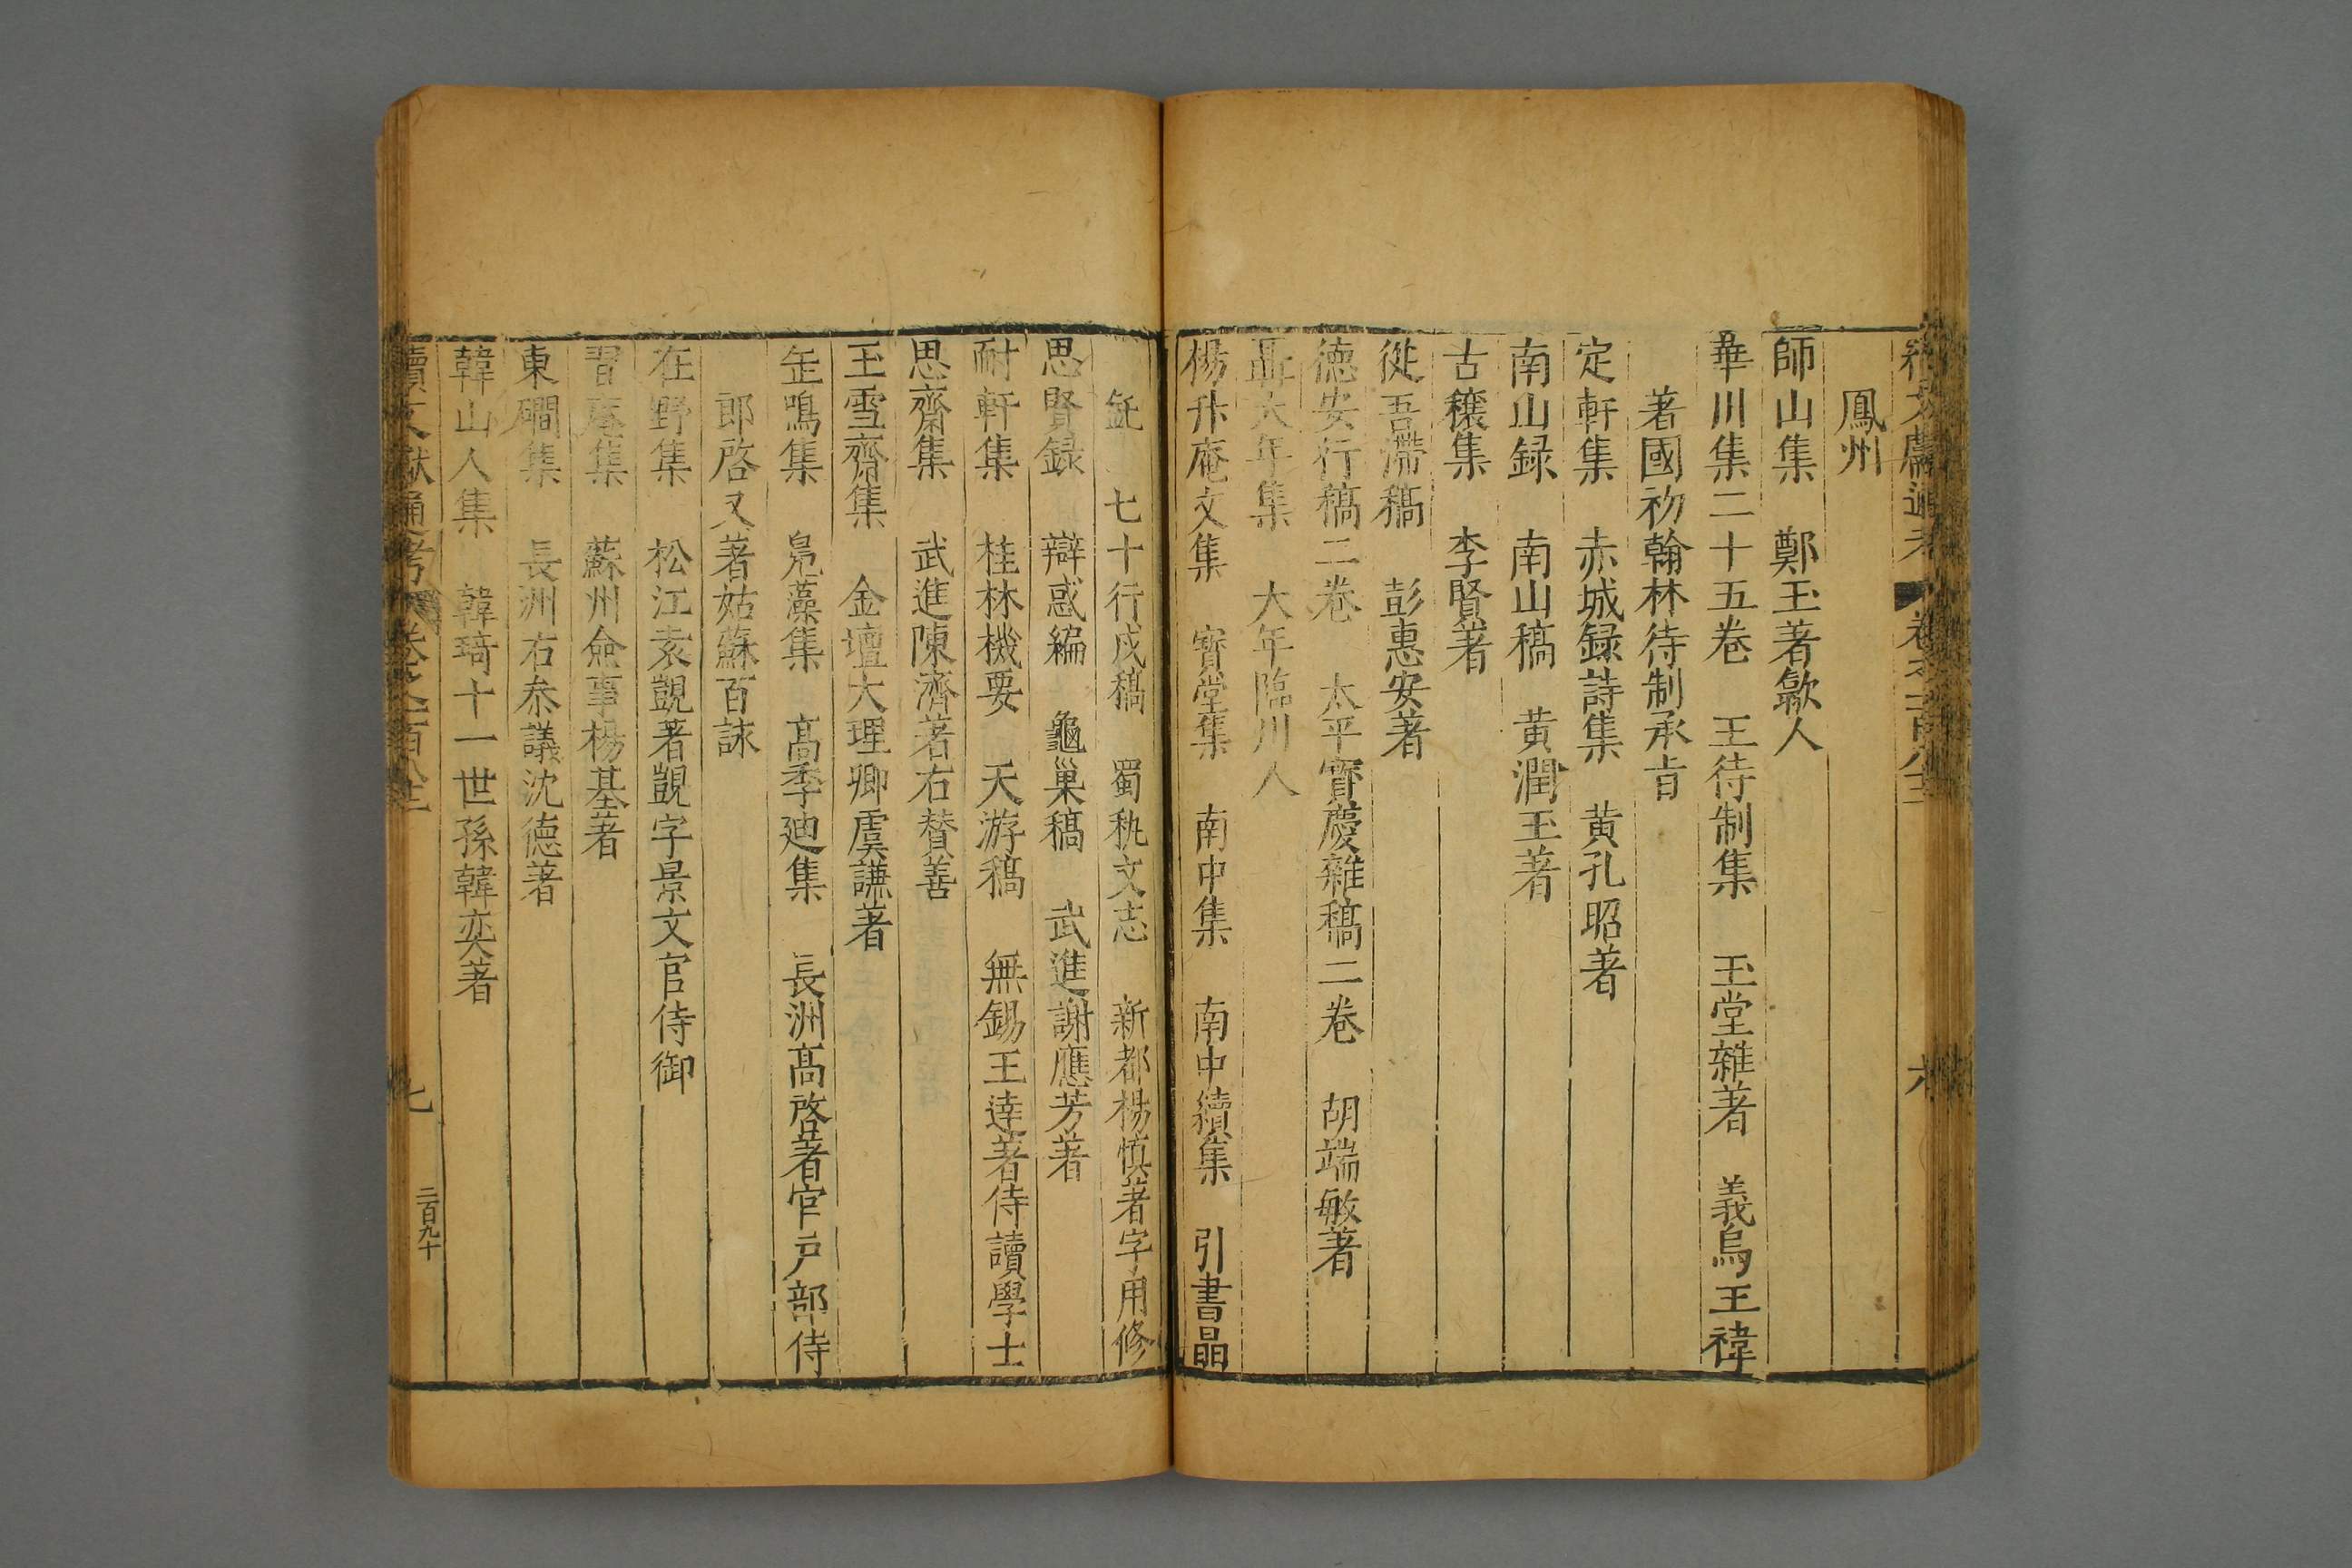 鳳州
師山集　鄭玉著歙人
華川集二十五卷　王待制集　玉堂雜著　義烏王禕
著國初翰林待制承旨
定軒集　赤城録詩集　黄孔昭著
南山録　南山稿　黄潤玉著
古穰集　李賢著
從吾滯稿　彭惠安著
德安行稿二卷　太平寳慶雜稿二卷　胡端敏著
聶大年集　大年臨川人
楊升庵文集　寳堂集　南中集　南中續集　引書晶
鉦　七十行戍稿　蜀秇文志　新都楊慎著字用修
思賢録　辯惑編　龜巢稿　武進謝應芳著
耐軒集　桂林機要　天游稿　無錫王達著侍讀學士
思齋集　武進陳濟著右賛善
玉雪齋集　金壇大理卿虞謙著
缶鳴集　鳬藻集　髙季廸集　長洲髙啓著官戸部侍
郎啓又著姑蘇百詠
在野集　松江袁凱著凱字景文官侍御
眉庵集　蘇州僉事楊基著
東磵集　長洲右叅議沈德著
韓山人集　韓琦十一世孫韓奕著
續文獻通考　卷之一百八十三
七
二百九十